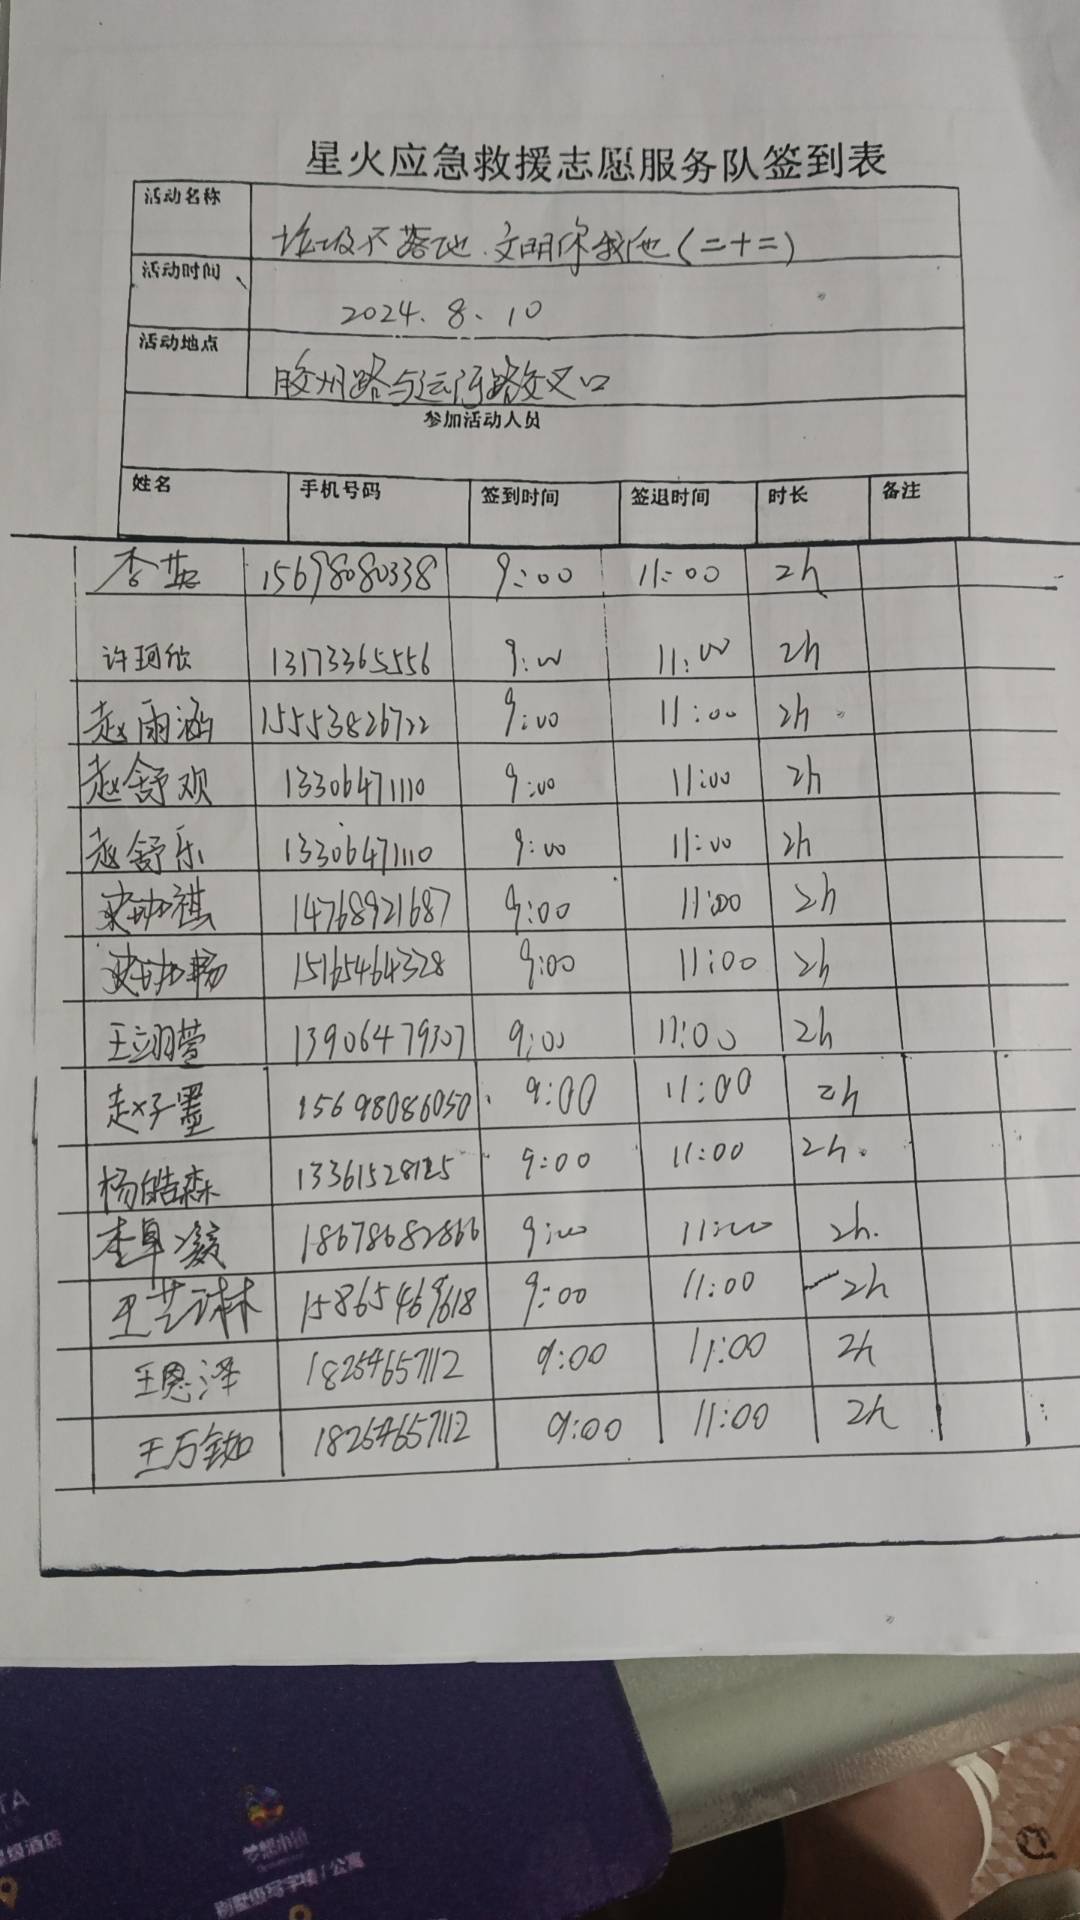 星火应急救援志愿服务队签到表
活动名称 垃圾不落地.文明你我他(二十二)
活动时间 2024.8.10
活动地点 胶州路与运河路交叉口
参加活动人员
姓名 手机号码 签到时间 签退时间 时长 备注
李英 15698080338 9:00 11:00 2h
许珂欣 13173365556 9:00 11:00 2h
赵雨涵 15553826722 9:00 11:00 2h
赵舒观 13306471110 9:00 11:00 2h
赵舒乐 13306471110 9:00 11:00 2h
梁珈祺 14768921687 9:00 11:00 2h
15165464328 9:00 11:00 2h
王翊萱 13906479307 9:00 11:00 2h
赵子墨 15698086050 9:00 11:00 2h
杨皓森 13361528125 9:00 11:00 2h.
18678682866 9:00 11:00 2h.
王艺琳 15865469618 9:00 11:00 2h
王恩泽 18254657112 9:00 11:00 2h
王万 18254657112 9:00 11:00 2h
TA
级酒店
梦想小镇
别墅/写字楼/公寓